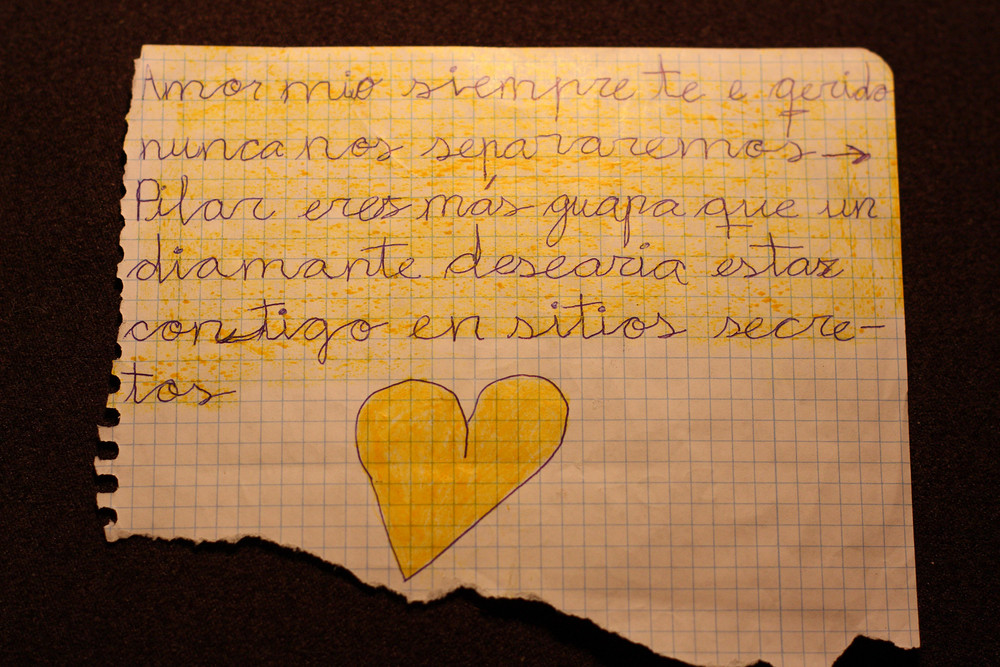 Amor mio siempre te e qerido
nunca nos separaremos →
Pilar eres más guapa que un
diamante desearia estar
contigo en sitios secre-
tos